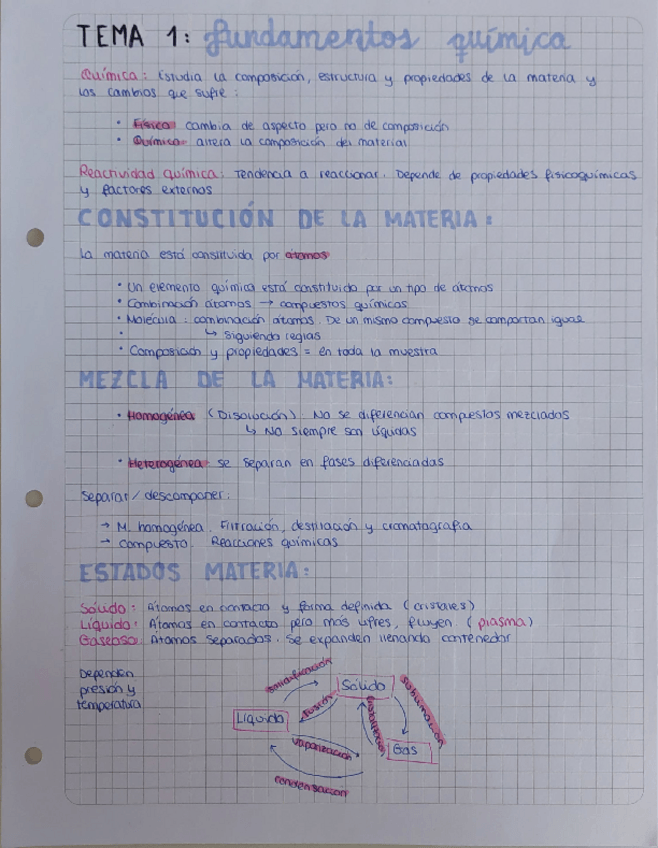 TEMA 1: fundamentos química
Química: Estudia la composición, estructura y propiedades de la materia y
los cambios que sufre:
• Física cambia de aspecto pero no de composición
• Química altera la composición del material
Reactividad química: Tendencia a reaccionar. Depende de propiedades fisicoquímicas
y factores externos
CONSTITUCIÓN DE LA MATERIA:
La materia está constituida por átomos
• Un elemento química está constituido por un tipo de átomos
• Combinación átomos → compuestos químicos
• Molécula: combinación átomos. De un mismo compuesto se comportan igual
• ↳ siguiendo reglas
• Composición y propiedades = en toda la muestra
MEZCLA DE LA MATERIA:
• Homogénea (Disolución). No se diferencian compuestos mezclados
↳ No siempre son líquidas
• Heterogénea se separan en fases diferenciadas
Separar/descomponer:
→ M. homogénea. Filtración, destilación y cromatografia
→ Compuesto. Reacciones químicas
ESTADOS MATERIA:
Sólido: Átomos en contacto y forma definida (cristales)
Líquido: Átomos en contacto pero más libres, fluyen. (plasma)
Gaseoso: Átomos separados. Se expanden llenando contenedor
Dependen
presión y
temperatura
solidificación
Sólido
sublimación
fusión
Líquido
Gas
vaporización
condensación